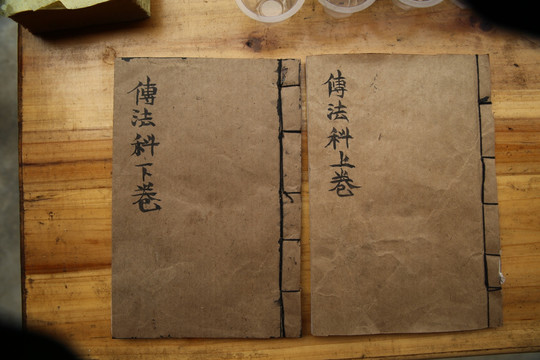 傳法科上卷
傳法科下卷